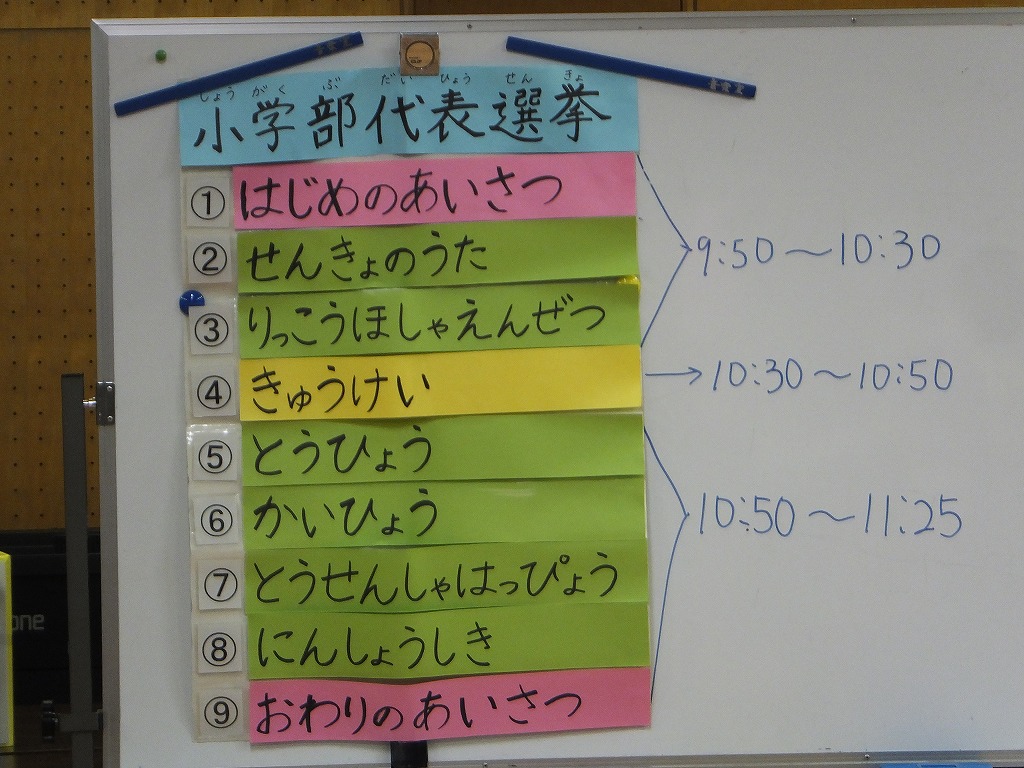 しょう がく ぶ だい ひょう せん きょ
小学部代表選挙
① はじめのあいさつ
② せんきょのうた
③ りっこうほしゃえんぜつ
9:50～10:30
④ きゅうけい
10:30～10:50
⑤ とうひょう
⑥ かいひょう
⑦ とうせんしゃはっぴょう
⑧ にんしょうしき
⑨ おわりのあいさつ
10:50～11:25
one